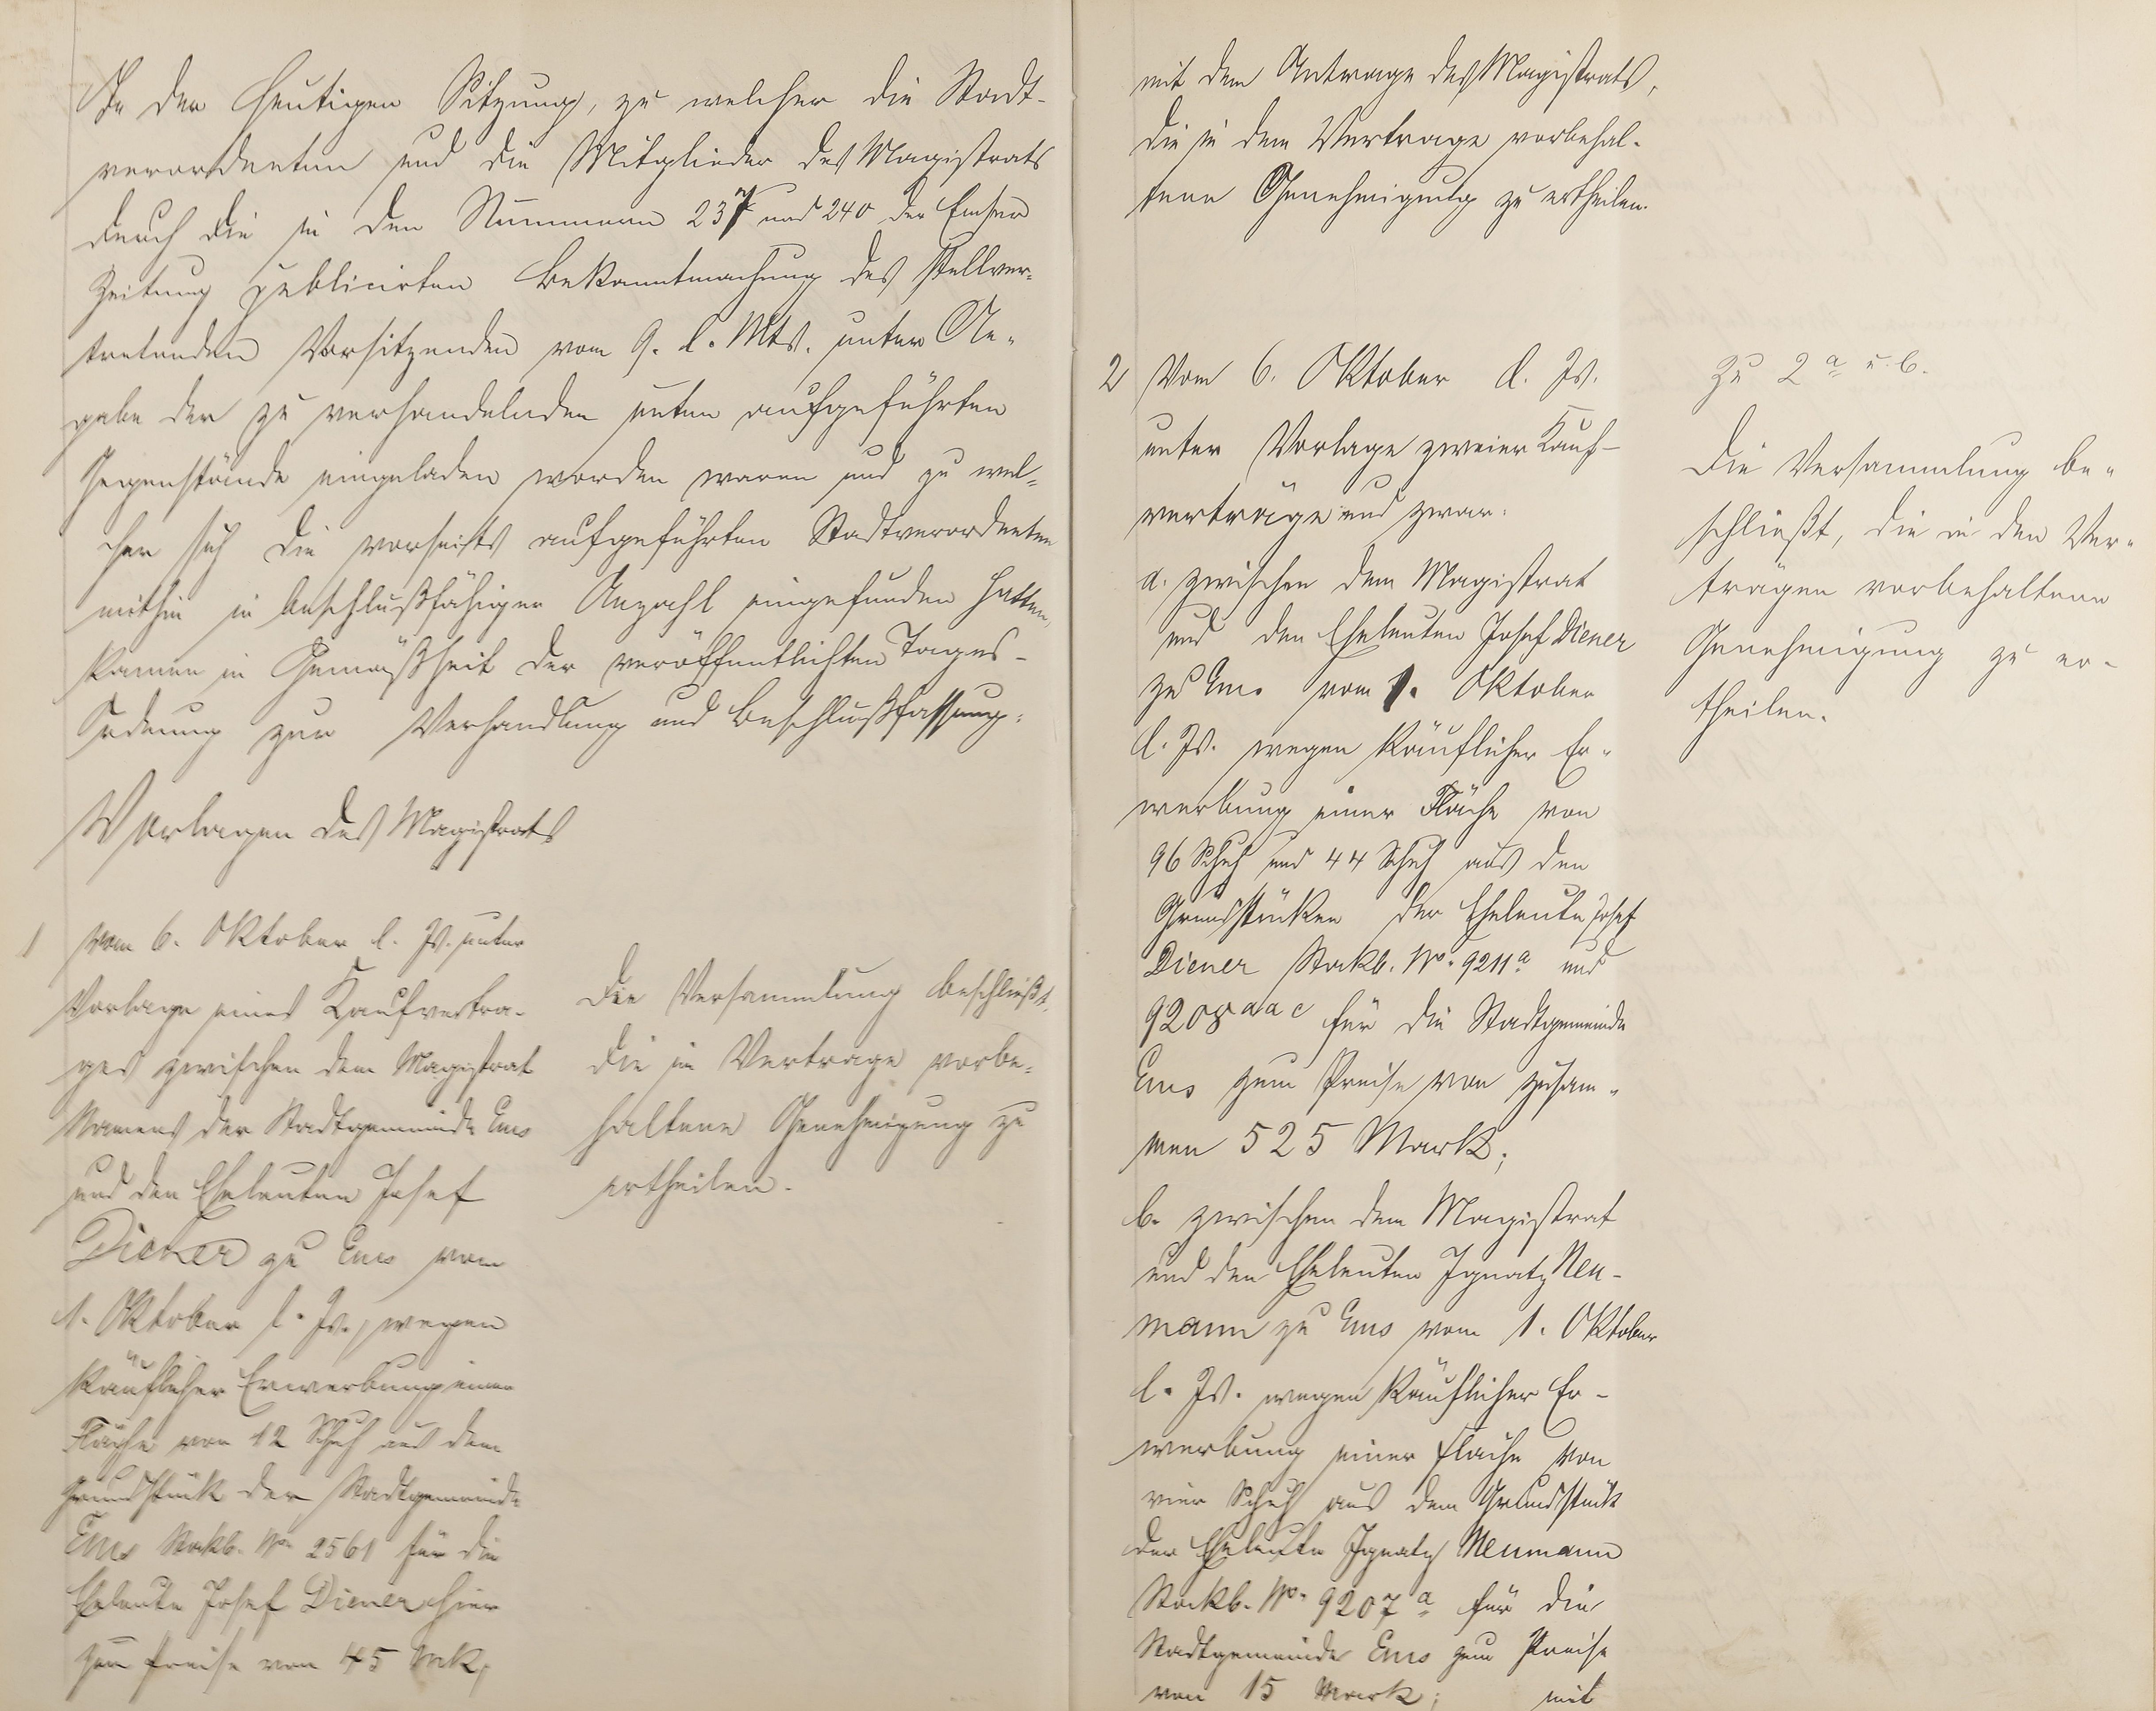 In der heutigen Sitzung, zu welcher die Stadt-
verordneten und die Mitglieder des Magistrats
durch die in den Nummern 237 und 240 der Emser
Zeitung publicirten Bekanntmachung des stellver-
tretenden Vorsitzenden vom 9. l. Mts. unter An-
gabe der zu verhandelnden unten aufgeführten
Gegenstände eingeladen worden waren und zu wel-
cher sich die vorseits aufgeführten Stadtverordneten
mithin in beschlußfähiger Anzahl eingefunden hatten,
kamen in Gemäßheit der veröffentlichten Tages-
Ordnung zur Verhandlung und Beschlußfassung:
Vorlagen des Magistrats
1 vom 6. Oktober l. Js. unter
Vorlage eines Kaufvertra-
ges zwischen dem Magistrat
Namens der Stadtgemeinde Ems
und den Eheleuten Josef
Diener zu Ems vom
1. Oktober l. Js., wegen
käuflicher Erwerbung einer
Fläche von 12 Schuh aus dem
Grundstück der Stadtgemeinde
Ems Stockb. No. 2561 für die
Eheleute Josef Diener hier
zum Preise von 45 Mk,
Die Versammlung beschließt,
die im Vertrage vorbe-
haltene Genehmigung zu
ertheilen.
mit dem Antrage des Magistrats,
die in dem Vertrage vorbehal-
tene Genehmigung zu ertheilen.
2 Vom 6. Oktober d. Js.
unter Vorlage zweier Kauf-
verträge und zwar:
a. zwischen dem Magistrat
und den Eheleuten Josef Diener
zu Ems vom 1. Oktober
l. Js. wegen käuflicher Er-
werbung einer Fläche von
96 Schuh und 44 Schuh aus den
Grundstücken der Eheleute Josef
Diener Stockb. No. 9211a und
9208 aac für die Stadtgemeinde
Ems zum Preise von zusam-
men 525 Mark;
b. zwischen dem Magistrat
und den Eheleuten Ignatz Neu-
mann zu Ems vom 1. Oktober
l. Js. wegen käuflicher Er-
werbung einer Fläche von
vier Schuh aus dem Grundstück
der Eheleute Ignatz Neumann
Stockb. No. 9207a für die
Stadtgemeinde Ems zum Preise
von 15 Mark; mit
Zu 2a u. b.
Die Versammlung be-
schließt, die in den Ver-
trägen vorbehaltene
Genehmigung zu er-
theilen.